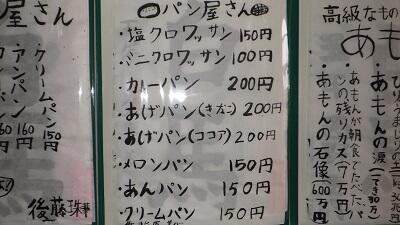 パン屋さん
・塩クロワッサン 150円
・ミニクロワッサン 100円
・カレーパン 200円
・あげパン(きなこ) 200円
・あげパン(ココア) 200円
・メロンパン 150円
・あんパン 150円
・クリームパン 150円
屋さん
クリームパン 150
アンパン 160
後藤珠
高級なもの
あも
あもんの涙
あもんが朝食でたべたパ
ンの残りカス(7万円)
・あもんの石像 600万円